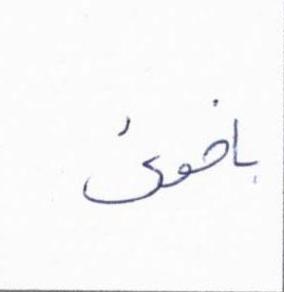 باضوئ